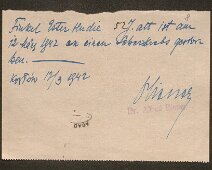 Finkel Ester Hudie 52 J. alt ist am
12 März 1942 an einem Leberkrebs gestor
ben.
17/3 1942
Dr.